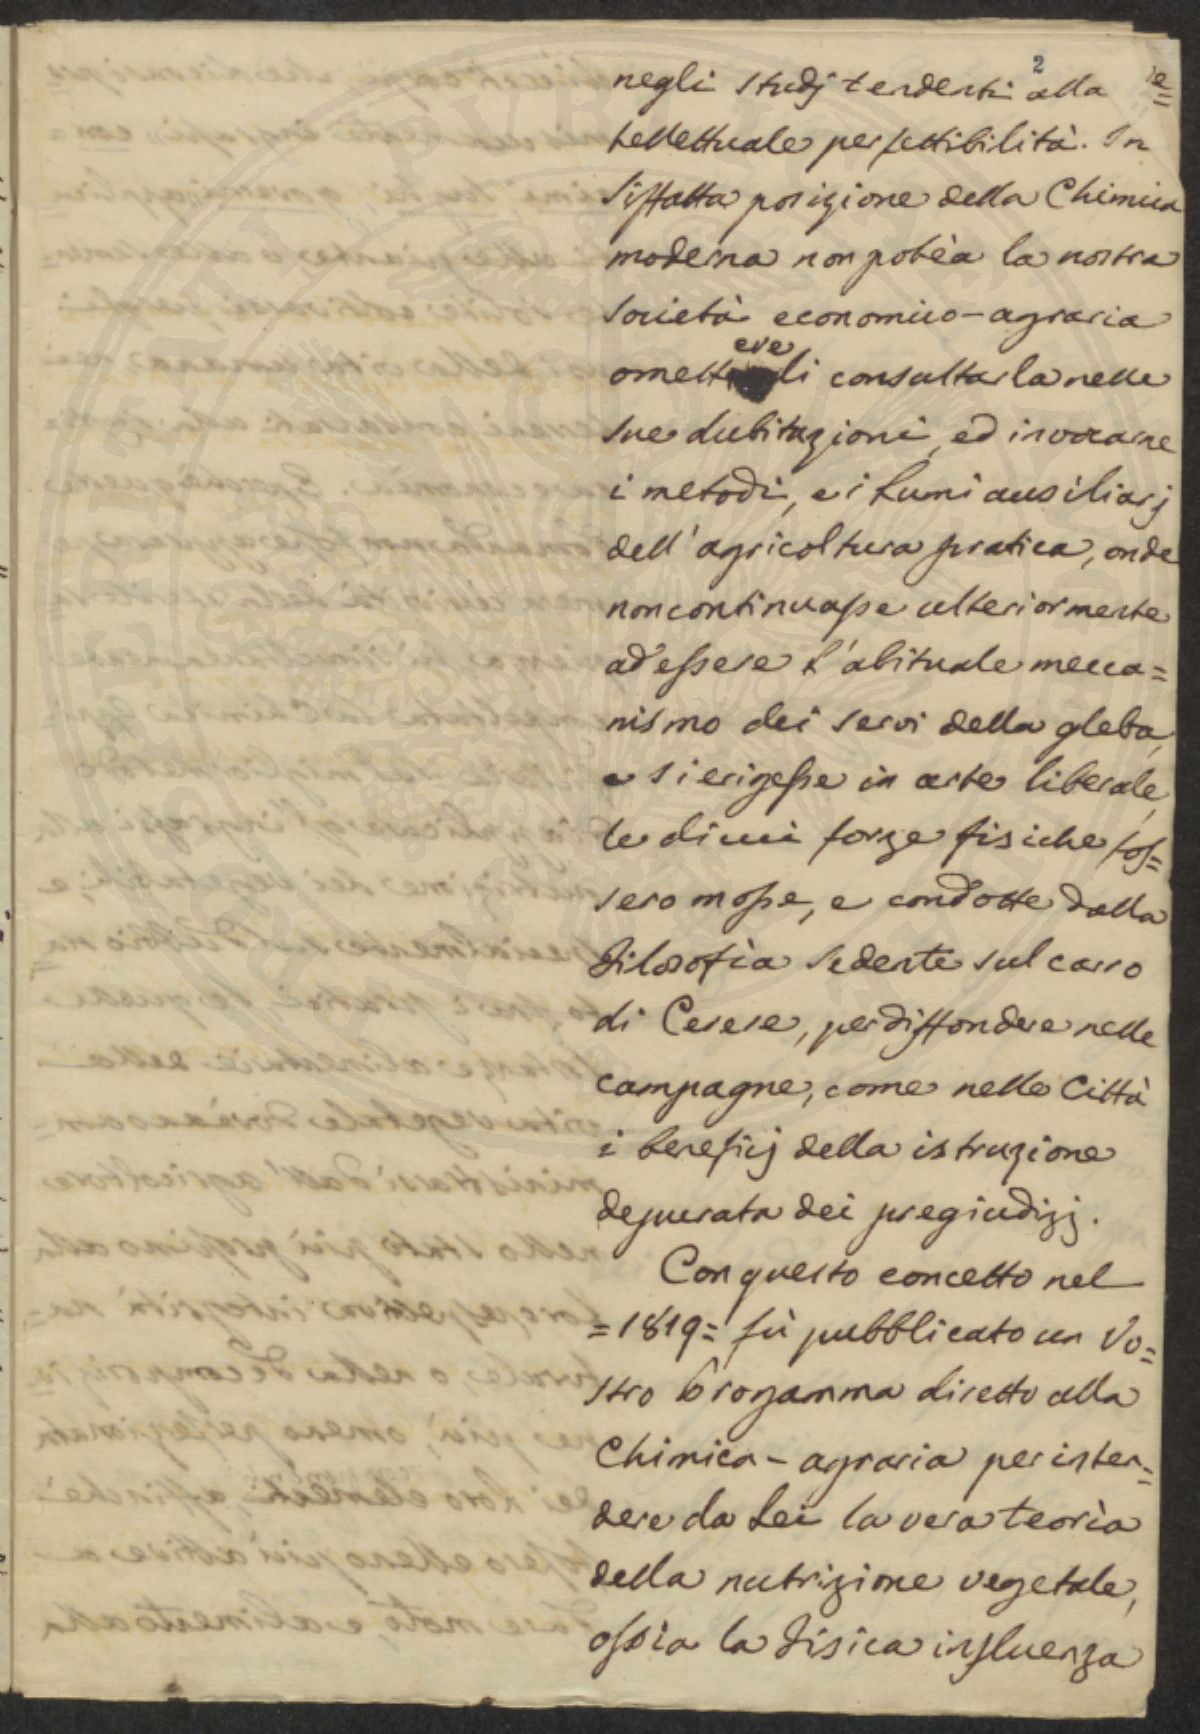 2
negli studj tendenti alla
tellettuale perfettibilità. In
siffatta posizione della Chimica
moderna non potèa la nostra
società economico-agraria
eve
omett li consultarla nelle
sue dubitazioni, ed invocarne
i metodi, e i lumi ausiliarj
dell' agricoltura pratica, onde
non continuasse ulteriormente
ad essere l'abituale mecca=
nismo dei servi della gleba,
e si erigesse in arte liberale,
le di cui forze fisiche fos=
sero mosse, e condotte dalla
Filosofia sedente sul carro
di Cerere, per diffondere nelle
campagne, come nelle Città
i beneficj della istruzione
depurata dei pregiudizj.
Con questo concetto nel
=1819= fù pubblicato un Vo=
stro Programma diretto alla
Chimica-agraria per inten=
dere da Lei la vera teorìa
della nutrizione vegetale,
ossia la fisica influenza